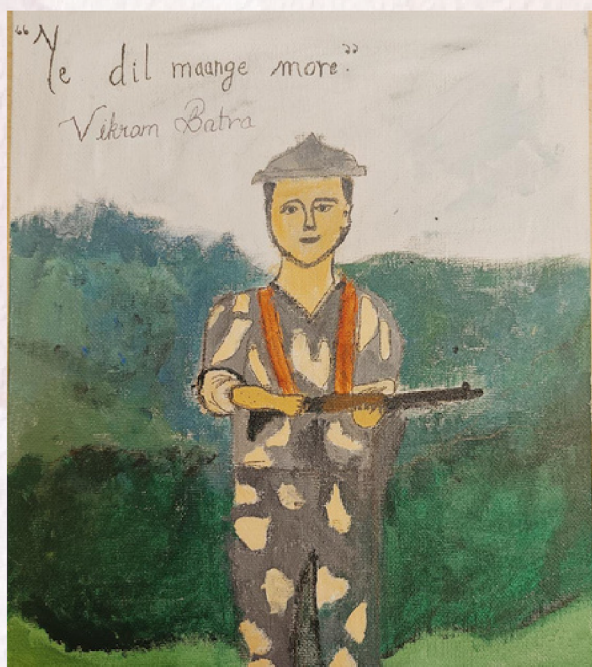 "Ye dil maange more."
Vikram Batra